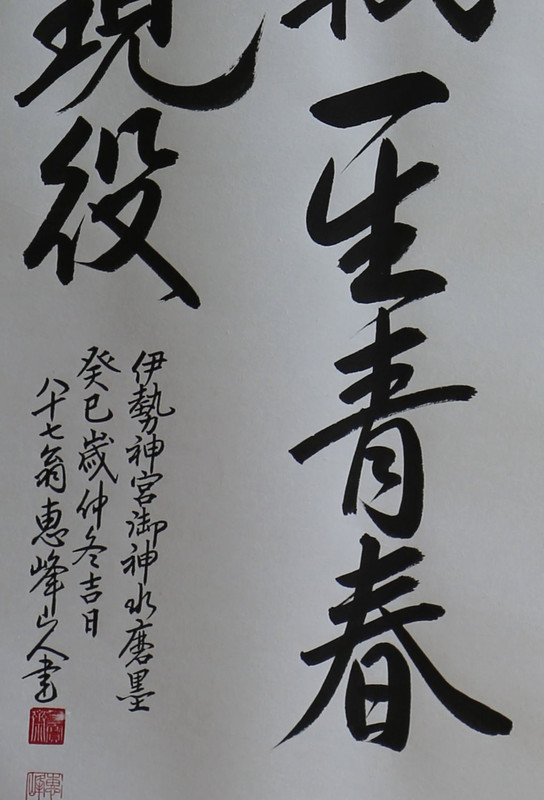 一生青春
現役
伊勢神宮御神水磨墨
癸巳歳仲冬吉日
八十七翁恵峰山人書